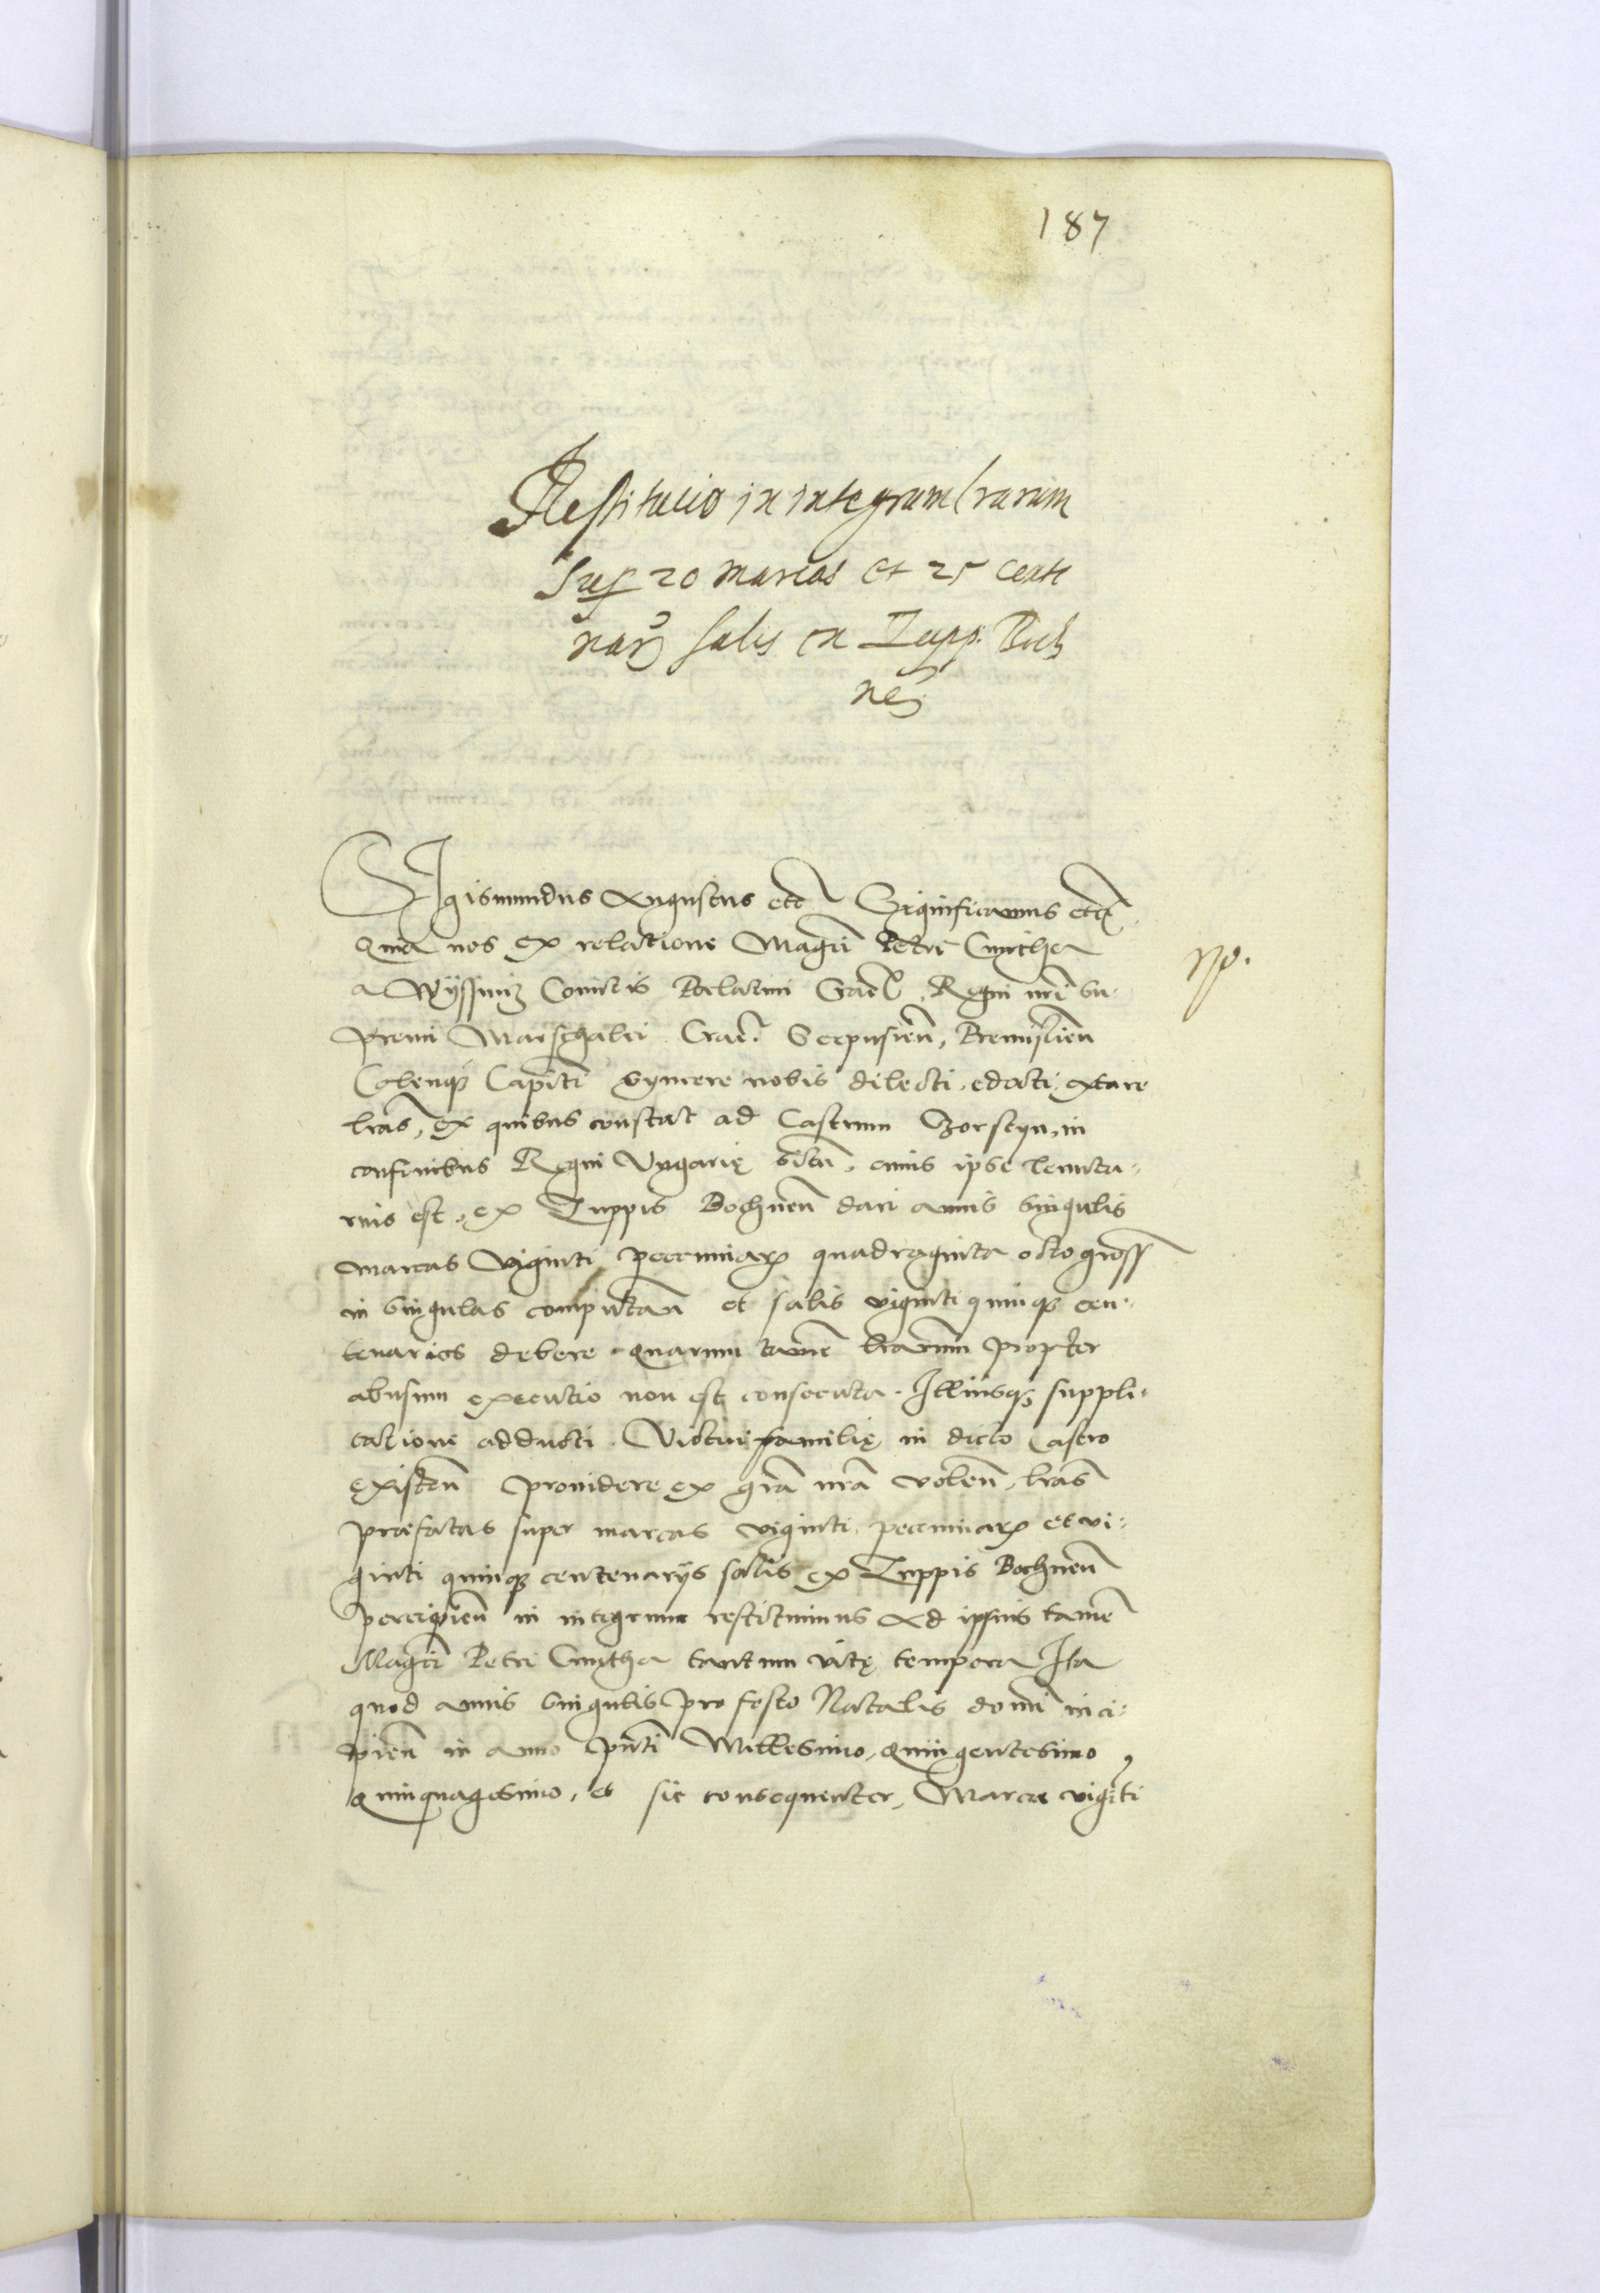 187
Restitucio in integrum lrarum
sup 20 marcas et 25 cente
nar salis ex Zupp. Boch
nen
Sigismundus Augustus etc Significamus etc
Quia nos ex relatione Magci Petri Cmitha
a Wyssnicz Comitis Palatini Crac. Regni nri su-
premi Marschalci Crac. Scepusien, Premislien
Colensq Capitti syncere nobis dilecti, edocti, extare
lras, ex quibus constat ad Castrum Zorstyn, in
confinibus Regni Vngarię sitū, cuius ipse tenuta-
rius est, ex Zuppis Bochnen dari annis singulis
marcas viginti pecuniarz quadraginta octo gross
in singulas computan et salis viginti quinq cen-
tenarios debere quarum tamē lrarum propter
abusum executio non est consecuta. Illiusq suppli-
catione adducti. Victui familię in dicto Castro
existen providere ex grā nrā volen, lras
præfatas super marcas viginti pecuniarz et vi-
ginti quinq centenarijs salis ex Zuppis Bochnen
percipien in integrum restituimus ad ipsius tamē
Magci Petri Cmytha tantum vitę tempora Ita
quod annis singulis pro festo Natalis domi inci-
pien in anno pnti Millesimo, quingentesimo
quinquagesimo, et sic consequenter, Marcæ viginti